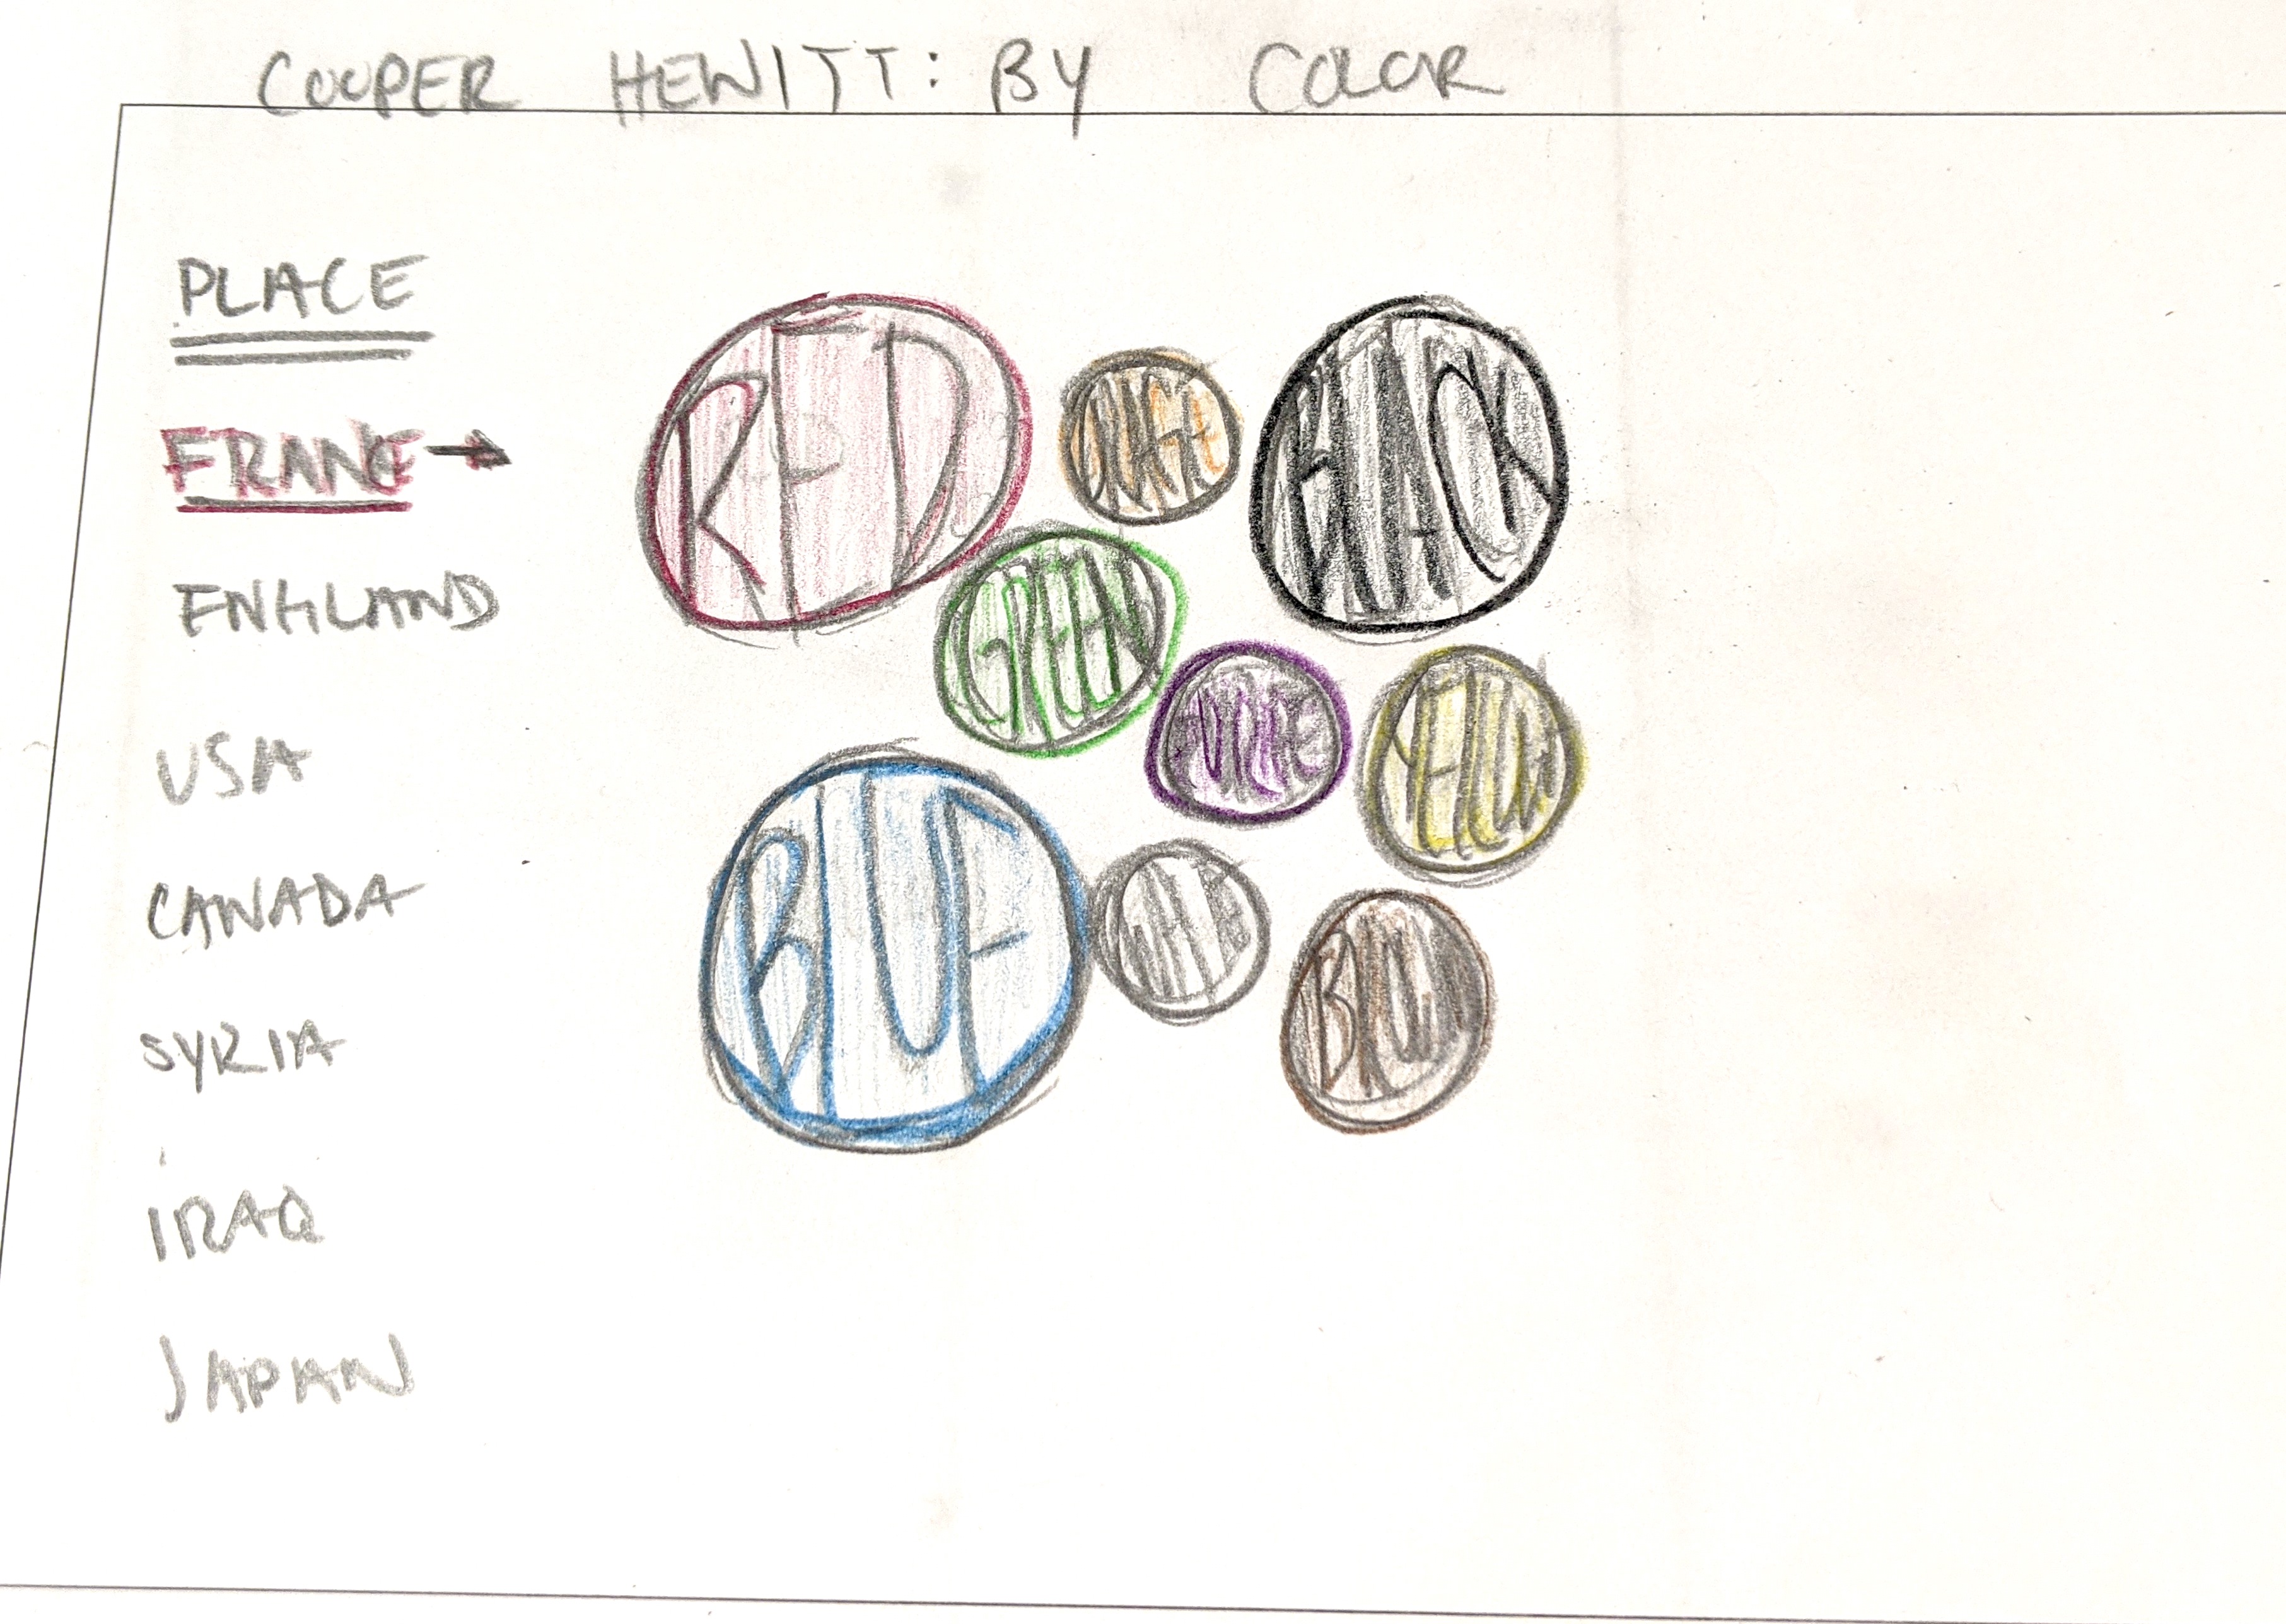 COOPER HEWITT: BY COLOR
PLACE
FRANCE
ENGLAND
USA
CANADA
SYRIA
IRAQ
JAPAN
RED
ORANGE
BLACK
GREEN
PURPLE
YELLOW
BLUE
WHITE
BROWN